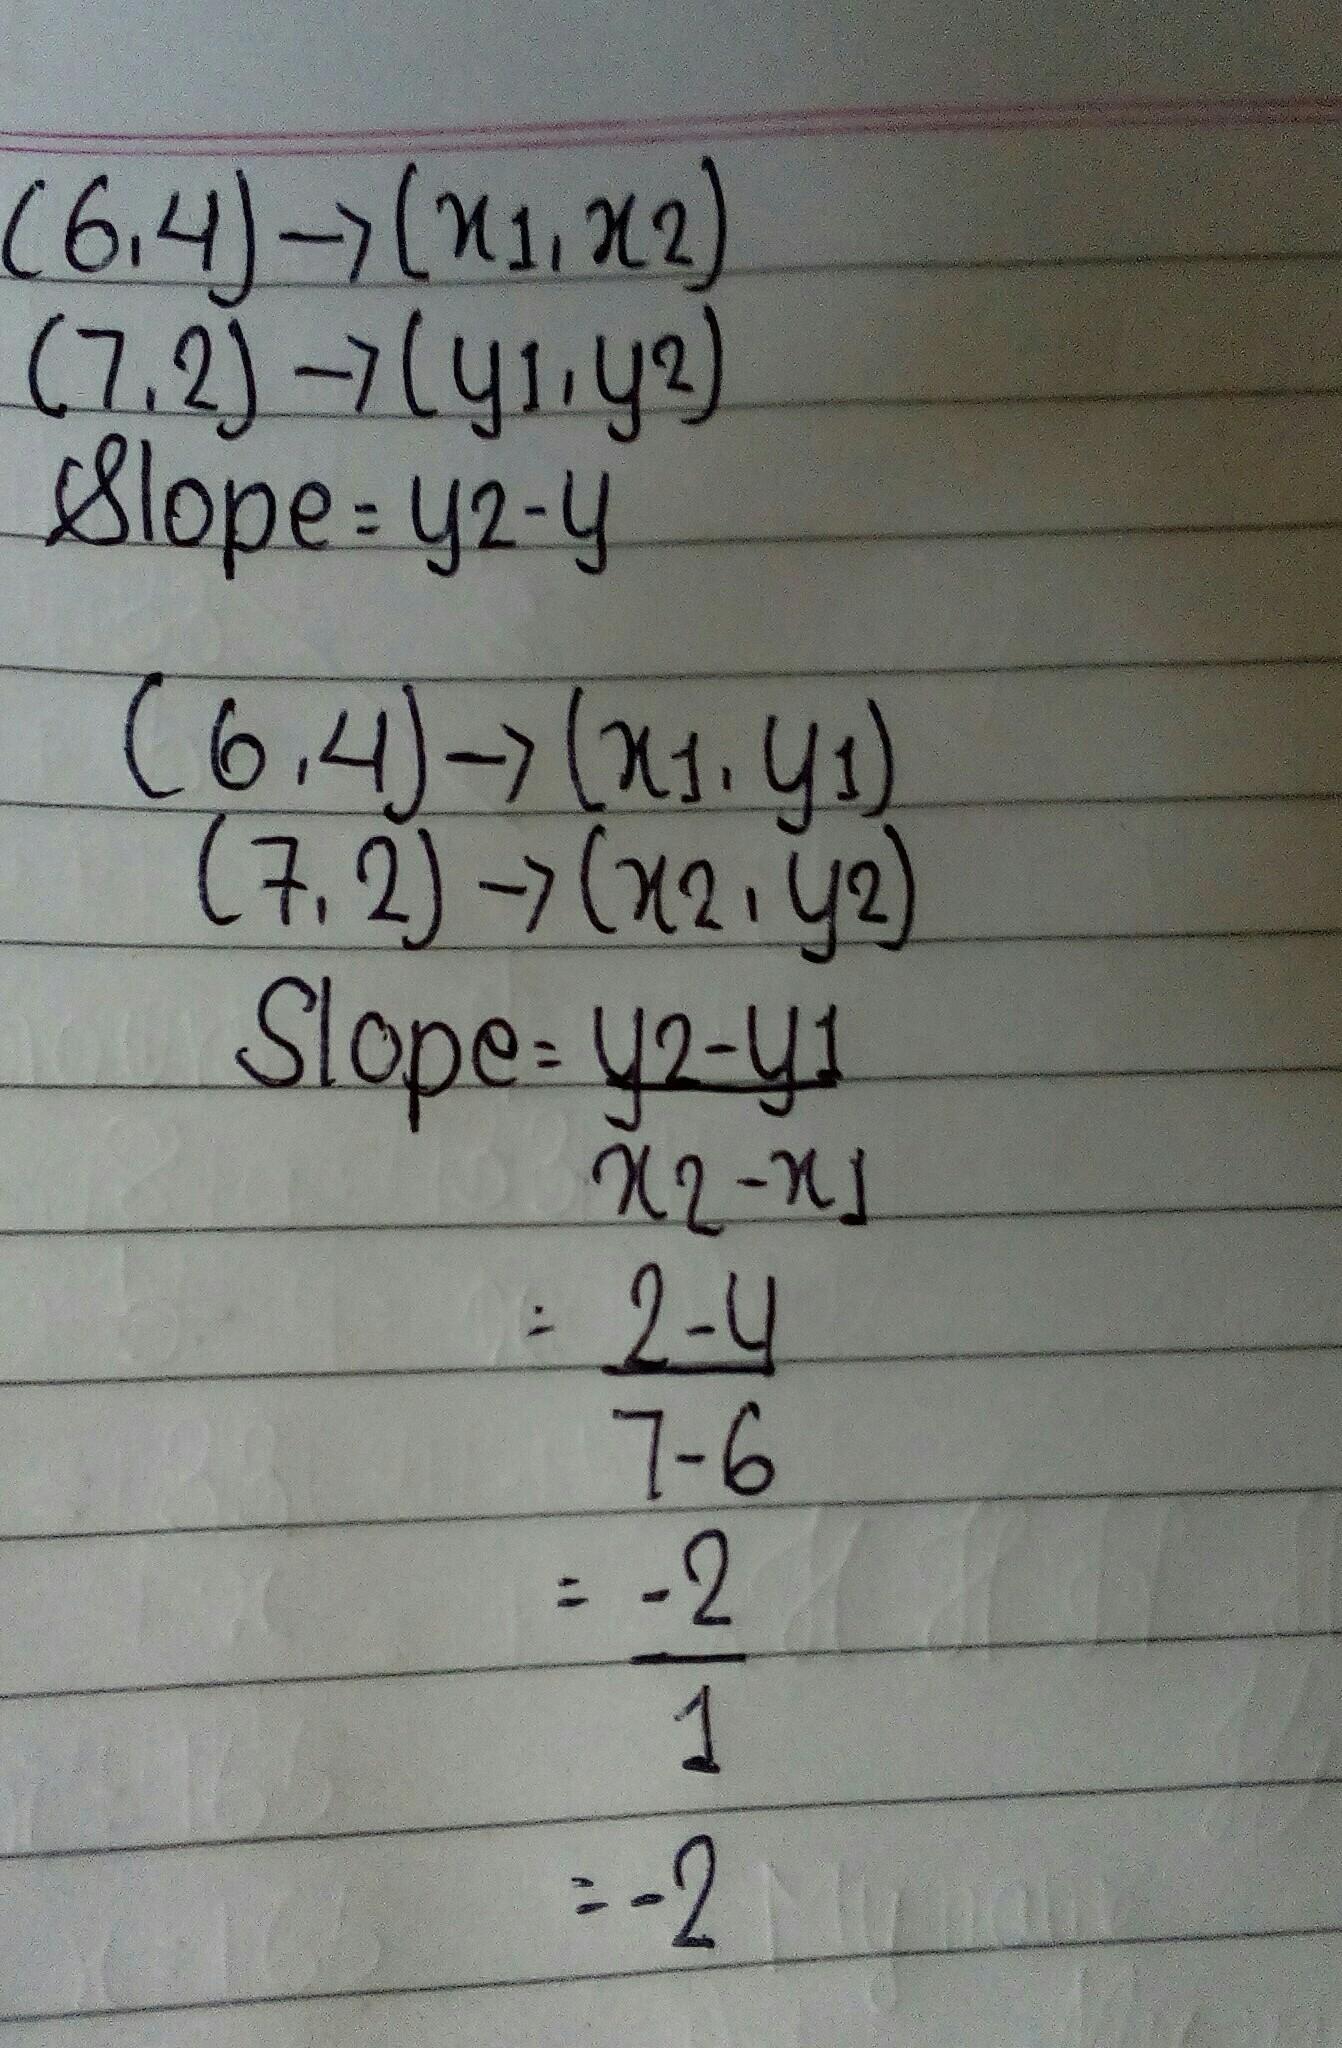 (6,4)->(x1,x2)
(7,2)->(y1,y2)
Slope=y2-y
(6,4)->(x1,y1)
(7,2)->(x2,y2)
Slope=y2-y1
x2-x1
= 2-4
7-6
= -2
1
=-2